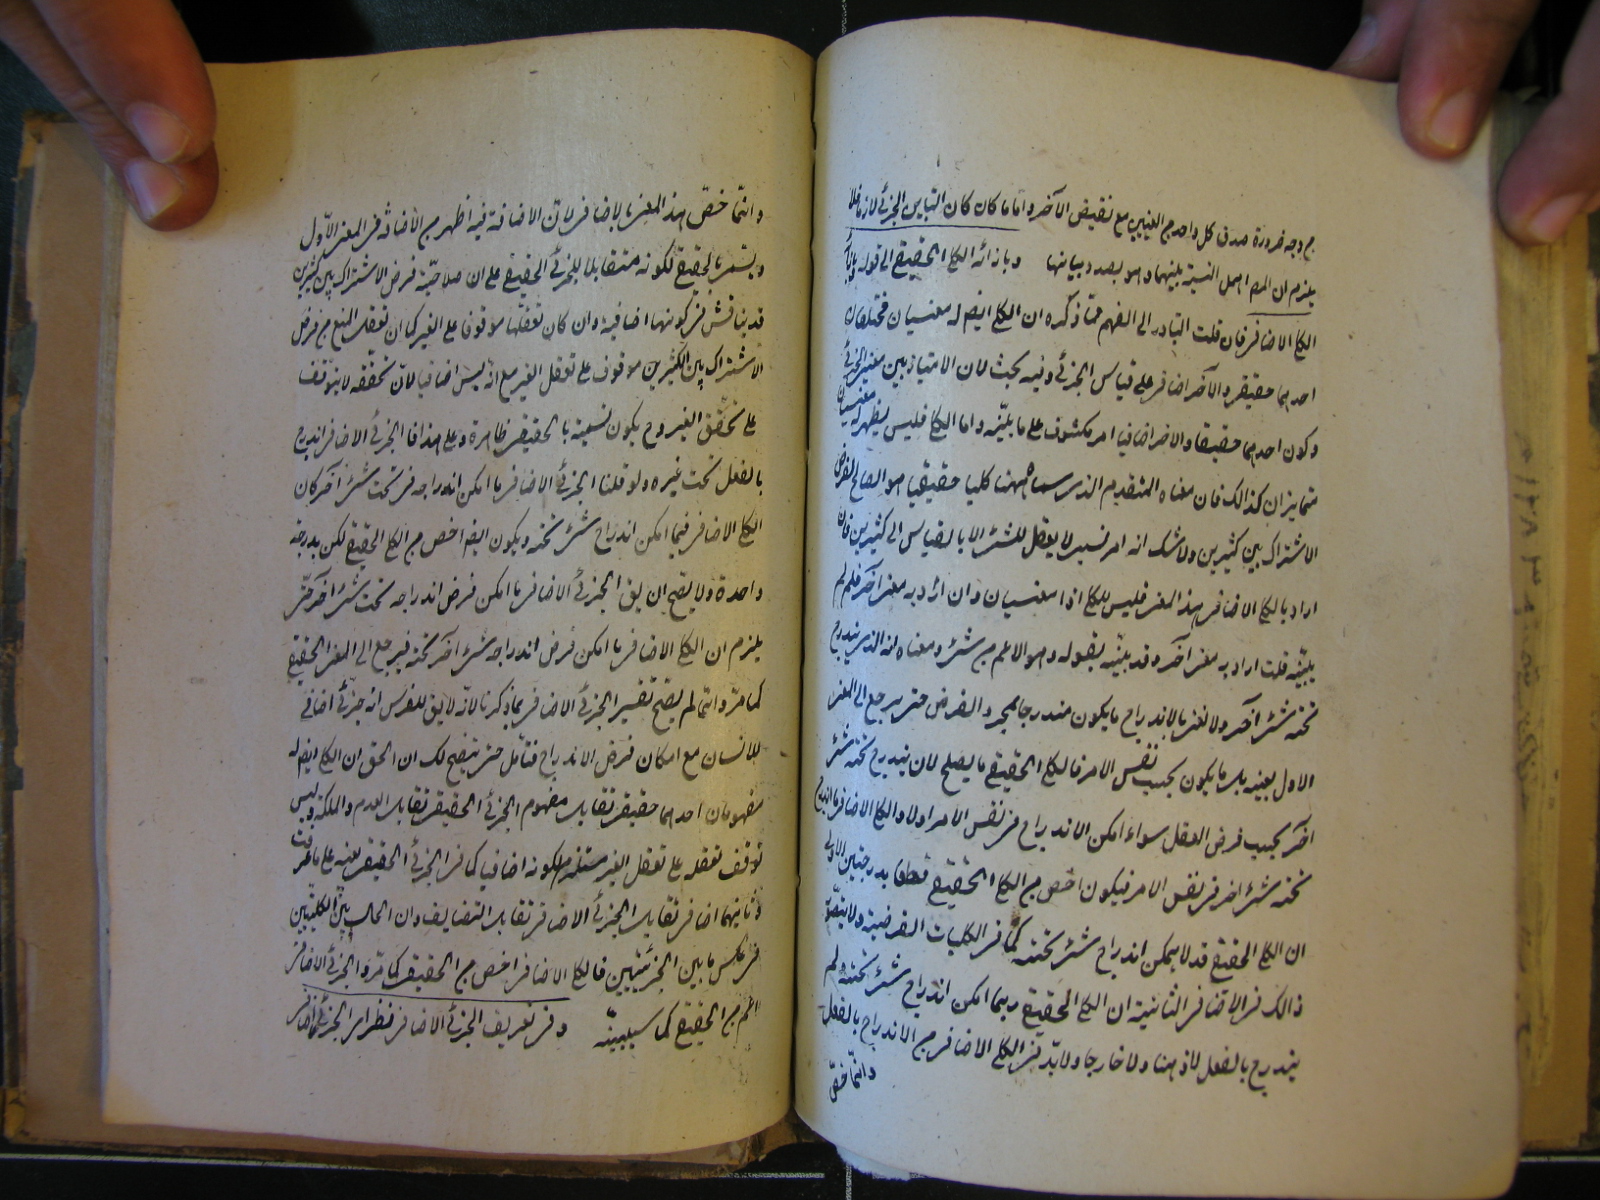 من وجه ضرورة صدق كل واحد من العينين مع نقيض الآخر واياما كان كان التباين الجزئى لازما فلا
يلزم ان المص اهمل النسبة بينهما وهو بصدد بيانها وبازائه الكلى الحقيقى الى قوله
الكلى الاضافى فان قلت المتبادر الى الفهم مما ذكره ان الكلى ايضا له معنيان مختلفان
احدهما حقيقى والآخر اضافى على قياس الجزئى وفيه بحث لان الامتياز بين معنيى الجزئى
وكون احدهما حقيقيا والاخر اضافيا امر مكشوف على ما بينه واما الكلى فليس يظهر له معنيان
متمايزان كذالك فان معناه المتقدم الذى سماه ههنا كليا حقيقيا هو الصالح لفرض
الاشتراك بين كثيرين ولا شك انه امر نسبى لا يعقل للشئ الا بالقياس الى كثيرين فان
اراد بالكلى الاضافى هذا المعنى فليس للكلى اذا معنيان وان اراد به معنى آخر فلم لم
يبينه قلت اراد به معنى آخر وقد بينه بقوله وهو الاعم من شئ ومعناه انه الذى يندرج
تحته شئ آخر ولا نعنى بالاندراج ما يكون مندرجا بمجرد الفرض حتى يرجع الى المعنى
الاول بعينه بل ما يكون بحسب نفس الامر فالكلى الحقيقى ما يصلح لان يندرج تحته شئ
آخر بحسب فرض العقل سواء امكن الاندراج فى نفس الامر اولا والكلى الاضافى ما اندرج
تحته شئ اخر فى نفس الامر فيكون اخص من الكلى الحقيقى قطعا بدرجتين الاولى
ان الكلى الحقيقى قد لا يمكن اندراج شئ تحته كما فى الكليات الفرضية ولا يتصور
ذالك فى الاضافى الثانية ان الكلى الحقيقى ربما امكن اندراج شئ تحته ولم
يندرج بالفعل لا ذهنا ولا خارجا ولا بد فى الكلى الاضافى من الاندراج بالفعل
وانما خص
وانما خص هذا المعنى بالاضافى لان الاضافة فيه اظهر من الاضافة فى المعنى الاول
ويسمى بالحقيقى لكونه مقابلا للجزئى الحقيقى على ان صلاحية فرض الاشتراك بين كثيرين
قد يناقش فى كونها اضافية وان كان تعقلها موقوفا على الغير كما ان تعقل المنع من فرض
الاشتراك بين الكثيرين موقوف على تعقل الغير مع انه ليس اضافيا لان تحققه لا يتوقف
على تحقق الغير وح يكون تسميته بالحقيقى ظاهرة وعلى هذا فالجزئى الاضافى اندرج
بالفعل تحت غيره ولو قلنا الجزئى الاضافى ما امكن اندراجه تحت شئ آخر كان
الكلى الاضافى فيما امكن اندراج شئ تحته ويكون ايضا اخص من الكلى الحقيقى لكن بدرجة
واحدة ولا يصح ان يق الجزئى الاضافى ما امكن فرض اندراجه تحت شئ آخر حتى
يلزم ان الكلى الاضافى ما امكن فرض اندراجه شئ آخر تحته فيرجع الى المعنى الحقيقى
كما مر وانما لم يصح تفسير الجزئى الاضافى بما ذكرنا لانه لا يق للفرس انه جزئى اضافى
للانسان مع امكان فرض الاندراج فتأمل حتى يتضح لك ان الحق ان الكلى ايضا له
مفهومان احدهما حقيقى تقابل مفهوم الجزئى الحقيقى تقابل العدم والملكة وليس
توقف تعقله على تعقل الغير مستلزما لكونه اضافيا كما فى الجزئى الحقيقى بعينه على ما عرفت
وثانيهما اضافى تقابل الجزئى الاضافى تقابل التضايف وان الحال بين الكليين
فى عكس ما بين الجزئيين فالكلى الاضافى اخص من الحقيقى كما مر والجزئى الاضافى
اعم من الحقيقى كما سيبينه وفى تعريف الجزئى الاضافى نظر اى الجزئى الاضافى